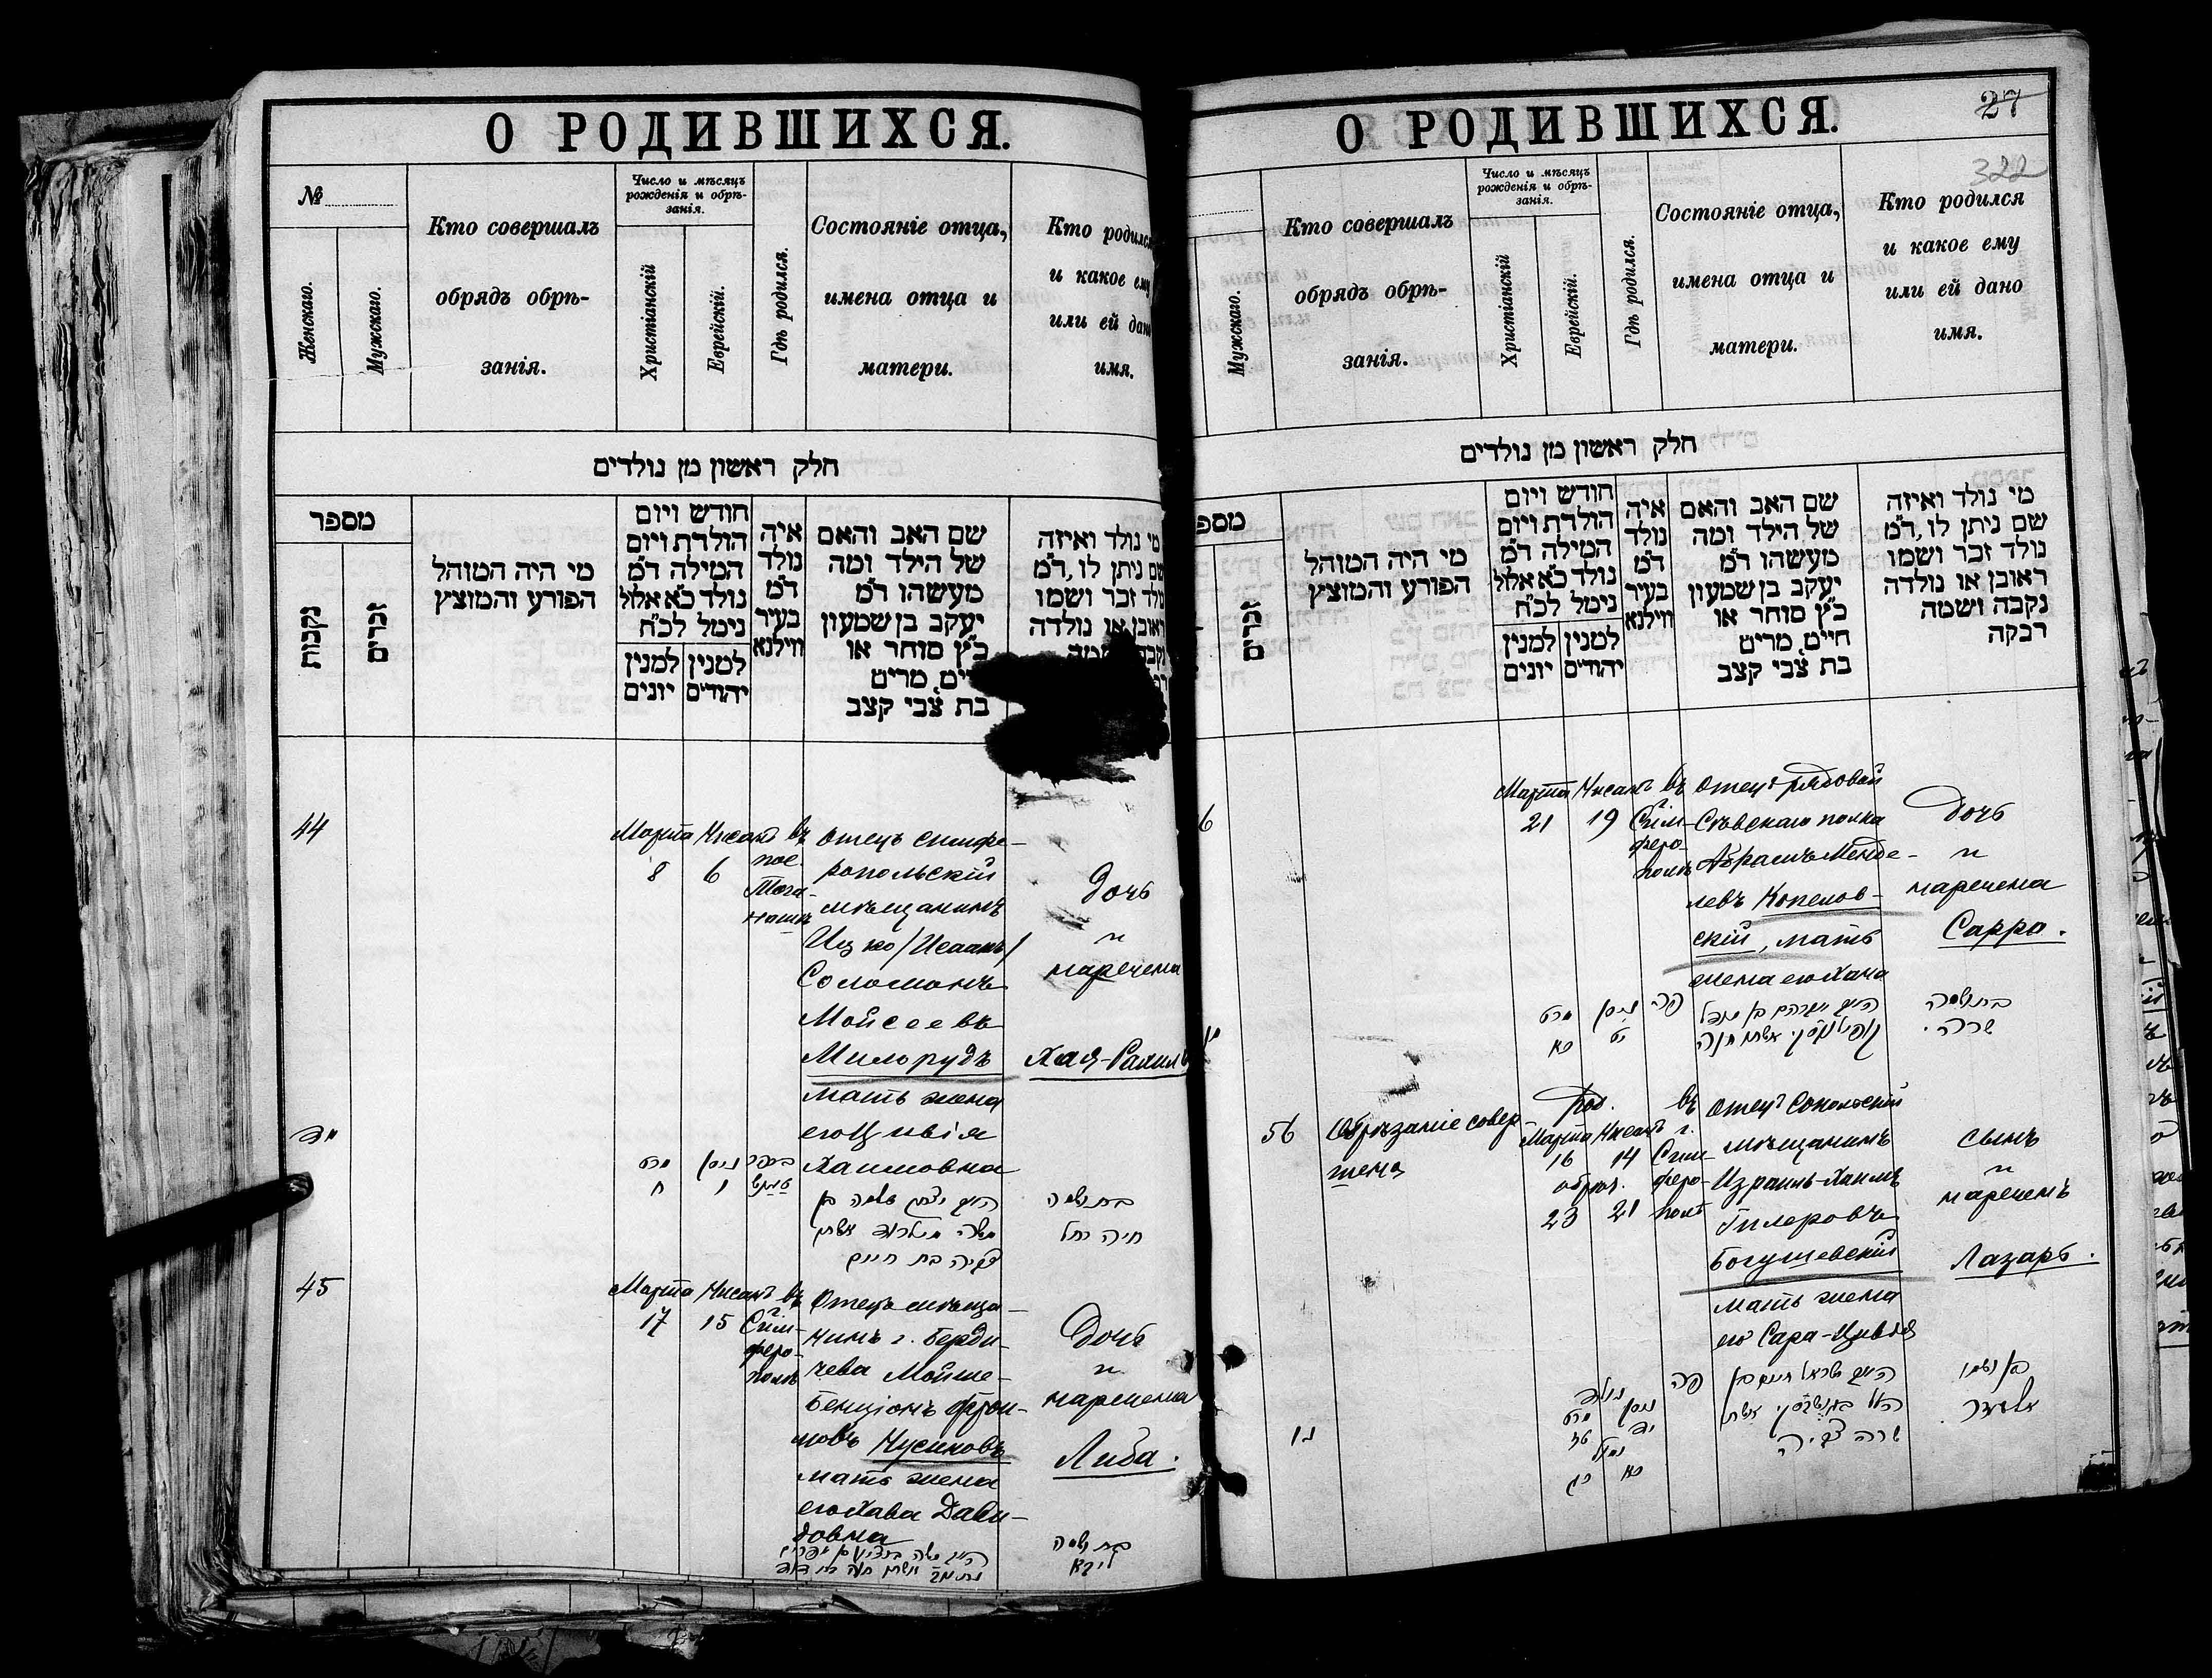 О РОДИВШИХСЯ.
№
Женскаго.
Мужскаго.
Кто совершалъ
обрядъ обрѣ-
занія.
Число и мѣсяцъ
рожденія и обрѣ-
занія.
Христіанскій
Еврейскій.
Гдѣ родился.
Состояніе отца,
имена отца и
матери.
Кто родился
и какое ему
или ей дано
имя.
חלק ראשון מן נולדים
מספר
נקבות
זכרים
מי היה המוהל
הפורע והמוצץ
חודש ויום
הולדת ויום
המילה ד״מ
נולד כ״א אלול
נימל לכ״ח
למנין יהודים
למנין יונים
איה
נולד
ד״מ
בעיר
ווילנא
שם האב והאם
של הילד ומה
מעשהו ד״מ
יעקב בן שמעון
כ״ץ סוחר או
מרים
בת צבי קצב
מי נולד ואיזה
שם ניתן לו, ד״מ
נולד זכר ושמו
ראובן או נולדה
44
Марта 8
Нисанъ 6
въ
пос.
Отецъ симфе-
ропольскій
мѣщанинъ
Ицко /Исаакъ/
Соломонъ
Мойсеевъ
Милорудъ
мать жена
его Цивія
Хаимовна
Дочь
и
наречена
Хая-Рахиль
מד
מרט ח
ניסן ו
האב יצחק שלמה בן
משה מילרוד אשתו
צביה בת חיים
בת ושמה
חיה רחל
45
Марта 17
Нисанъ 15
въ
г.
Сим-
феро-
полѣ
Отецъ мѣща-
нинъ г. Берди-
чева Мойше-
Бенціонъ Фрои-
мовъ Нусиновъ
мать жена
его Хава Дави-
довна
Дочь
и
наречена
Либа.
האב משה בנציון בן אפרים
בת ושמה
ליבא
О РОДИВШИХСЯ.
27
322
Мужскаго.
Кто совершалъ
обрядъ обрѣ-
занія.
Число и мѣсяцъ
рожденія и обрѣ-
занія.
Христіанскій
Еврейскій.
Гдѣ родился.
Состояніе отца,
имена отца и
матери.
Кто родился
и какое ему
или ей дано
имя.
חלק ראשון מן נולדים
זכרים
מי היה המוהל
הפורע והמוצץ
חודש ויום
הולדת ויום
המילה ד״מ
נולד כ״א אלול
נימל לכ״ח
למנין יהודים
למנין יונים
איה
נולד
ד״מ
בעיר
ווילנא
שם האב והאם
של הילד ומה
מעשהו ד״מ
יעקב בן שמעון
כ״ץ סוחר או
חיים, מרים
בת צבי קצב
מי נולד ואיזה
שם ניתן לו, ד״מ
נולד זכר ושמו
ראובן או נולדה
נקבה ושמה
רבקה
6
Марта 21
Нисанъ 19
въ
г.
Сим-
феро-
полѣ
Отецъ рядовой
Сѣвскаго полка
Абрамъ Менде-
левъ Копелов-
скій, мать
жена его Хана
Дочь
и
наречена
Сарра.
מרט כא
ניסן יט
פה
האב אברהם בן מנדל
קופילovסקי אשתו חנה
בת ושמה
שרה.
56
Обрѣзаніе совер-
шено
Род.
Марта 16
Нисанъ 14
обрѣз.
23 21
въ
г.
Сим-
феро-
полѣ
Отецъ Сокольскій
мѣщанинъ
Израиль-Хаимъ
Гилеровъ
Богушевскій
мать жена
его Сара-Цивья
сынъ
и
нареченъ
Лазарь.
נו
נולד
מרט טז
ניסן יד
נמול
כג כא
פה
האב ישראל חיים בן
הלל באגושעvסקי אשתו
שרה צביה
בן ושמו
אלעזר.